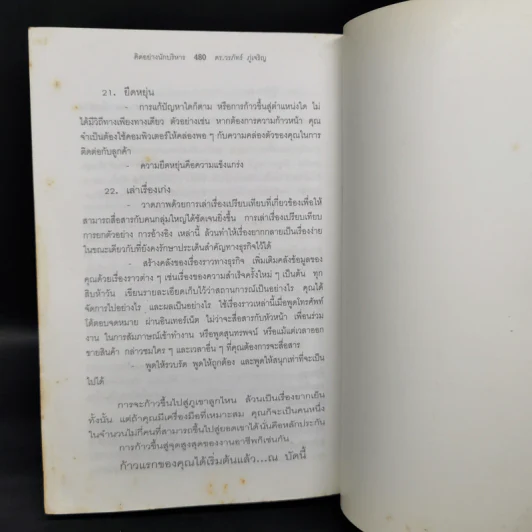 คิดอย่างนักบริหาร 480 ดร.วรภัทร์ ภู่เจริญ
21. ยืดหยุ่น
- การแก้ปัญหาใดก็ตาม หรือการก้าวขึ้นสู่ตำแหน่งใด ไม่
ได้มีวิถีทางเพียงทางเดียว ตัวอย่างเช่น หากต้องการความก้าวหน้า คุณ
จำเป็นต้องใช้คอมพิวเตอร์ให้คล่องพอ ๆ กับความคล่องตัวของคุณในการ
ติดต่อกับลูกค้า
- ความยืดหยุ่นคือความแข็งแกร่ง
22. เล่าเรื่องเก่ง
- วาดภาพด้วยการเล่าเรื่องเปรียบเทียบที่เกี่ยวข้องเพื่อให้
สามารถสื่อสารกับคนกลุ่มใหญ่ได้ชัดเจนยิ่งขึ้น การเล่าเรื่องเปรียบเทียบ
การยกตัวอย่าง การอ้างอิง เหล่านี้ ล้วนทำให้เรื่องยากกลายเป็นเรื่องง่าย
ในขณะเดียวกับที่ยังคงรักษาประเด็นสำคัญทางธุรกิจไว้ได้
- สร้างคลังของเรื่องราวทางธุรกิจ เพิ่มเติมคลังข้อมูลของ
คุณด้วยเรื่องราวต่าง ๆ เช่นเรื่องของความสำเร็จครั้งใหม่ ๆ เป็นต้น ทุก
สิบห้าวัน เขียนรายละเอียดเก็บไว้ว่าสถานการณ์เป็นอย่างไร คุณได้
จัดการไปอย่างไร และผลเป็นอย่างไร ใช้เรื่องราวเหล่านี้เมื่อพูดโทรศัพท์
โต้ตอบจดหมาย ผ่านอินเตอร์เน็ต ไม่ว่าจะสื่อสารกับหัวหน้า เพื่อนร่วม
งาน ในการสัมภาษณ์เข้าทำงาน หรือพูดสุนทรพจน์ หรือแม้แต่เวลาออก
ขายสินค้า กล่าวชมใคร ๆ และเวลาอื่น ๆ ที่คุณต้องการจะสื่อสาร
- พูดให้รวบรัด พูดให้ถูกต้อง และพูดให้สนุกเท่าที่จะเป็น
ไปได้
การจะก้าวขึ้นไปสู่ภูเขาลูกไหน ล้วนเป็นเรื่องยากเย็น
ทั้งนั้น แต่ถ้าคุณมีเครื่องมือที่เหมาะสม คุณก็จะเป็นคนหนึ่ง
ในจำนวนไม่กี่คนที่สามารถขึ้นไปสู่ยอดเขาได้นั่นคือหลักประกัน
การก้าวขึ้นสู่จุดสูงสุดของงานอาชีพก็เช่นกัน
ก้าวแรกของคุณได้เริ่มต้นแล้ว...ณ บัดนี้